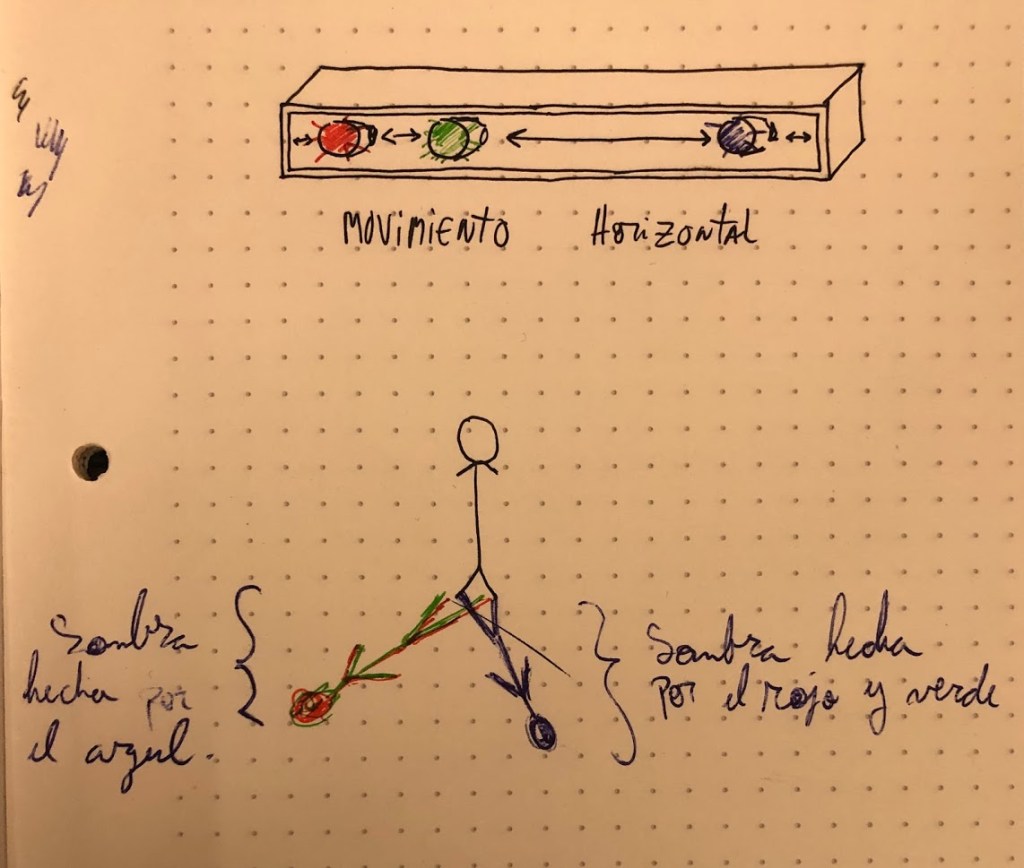 MOVIMIENTO Horizontal
Sombra
hecha por
el azul.
Sombra hecha
por el rojo y verde